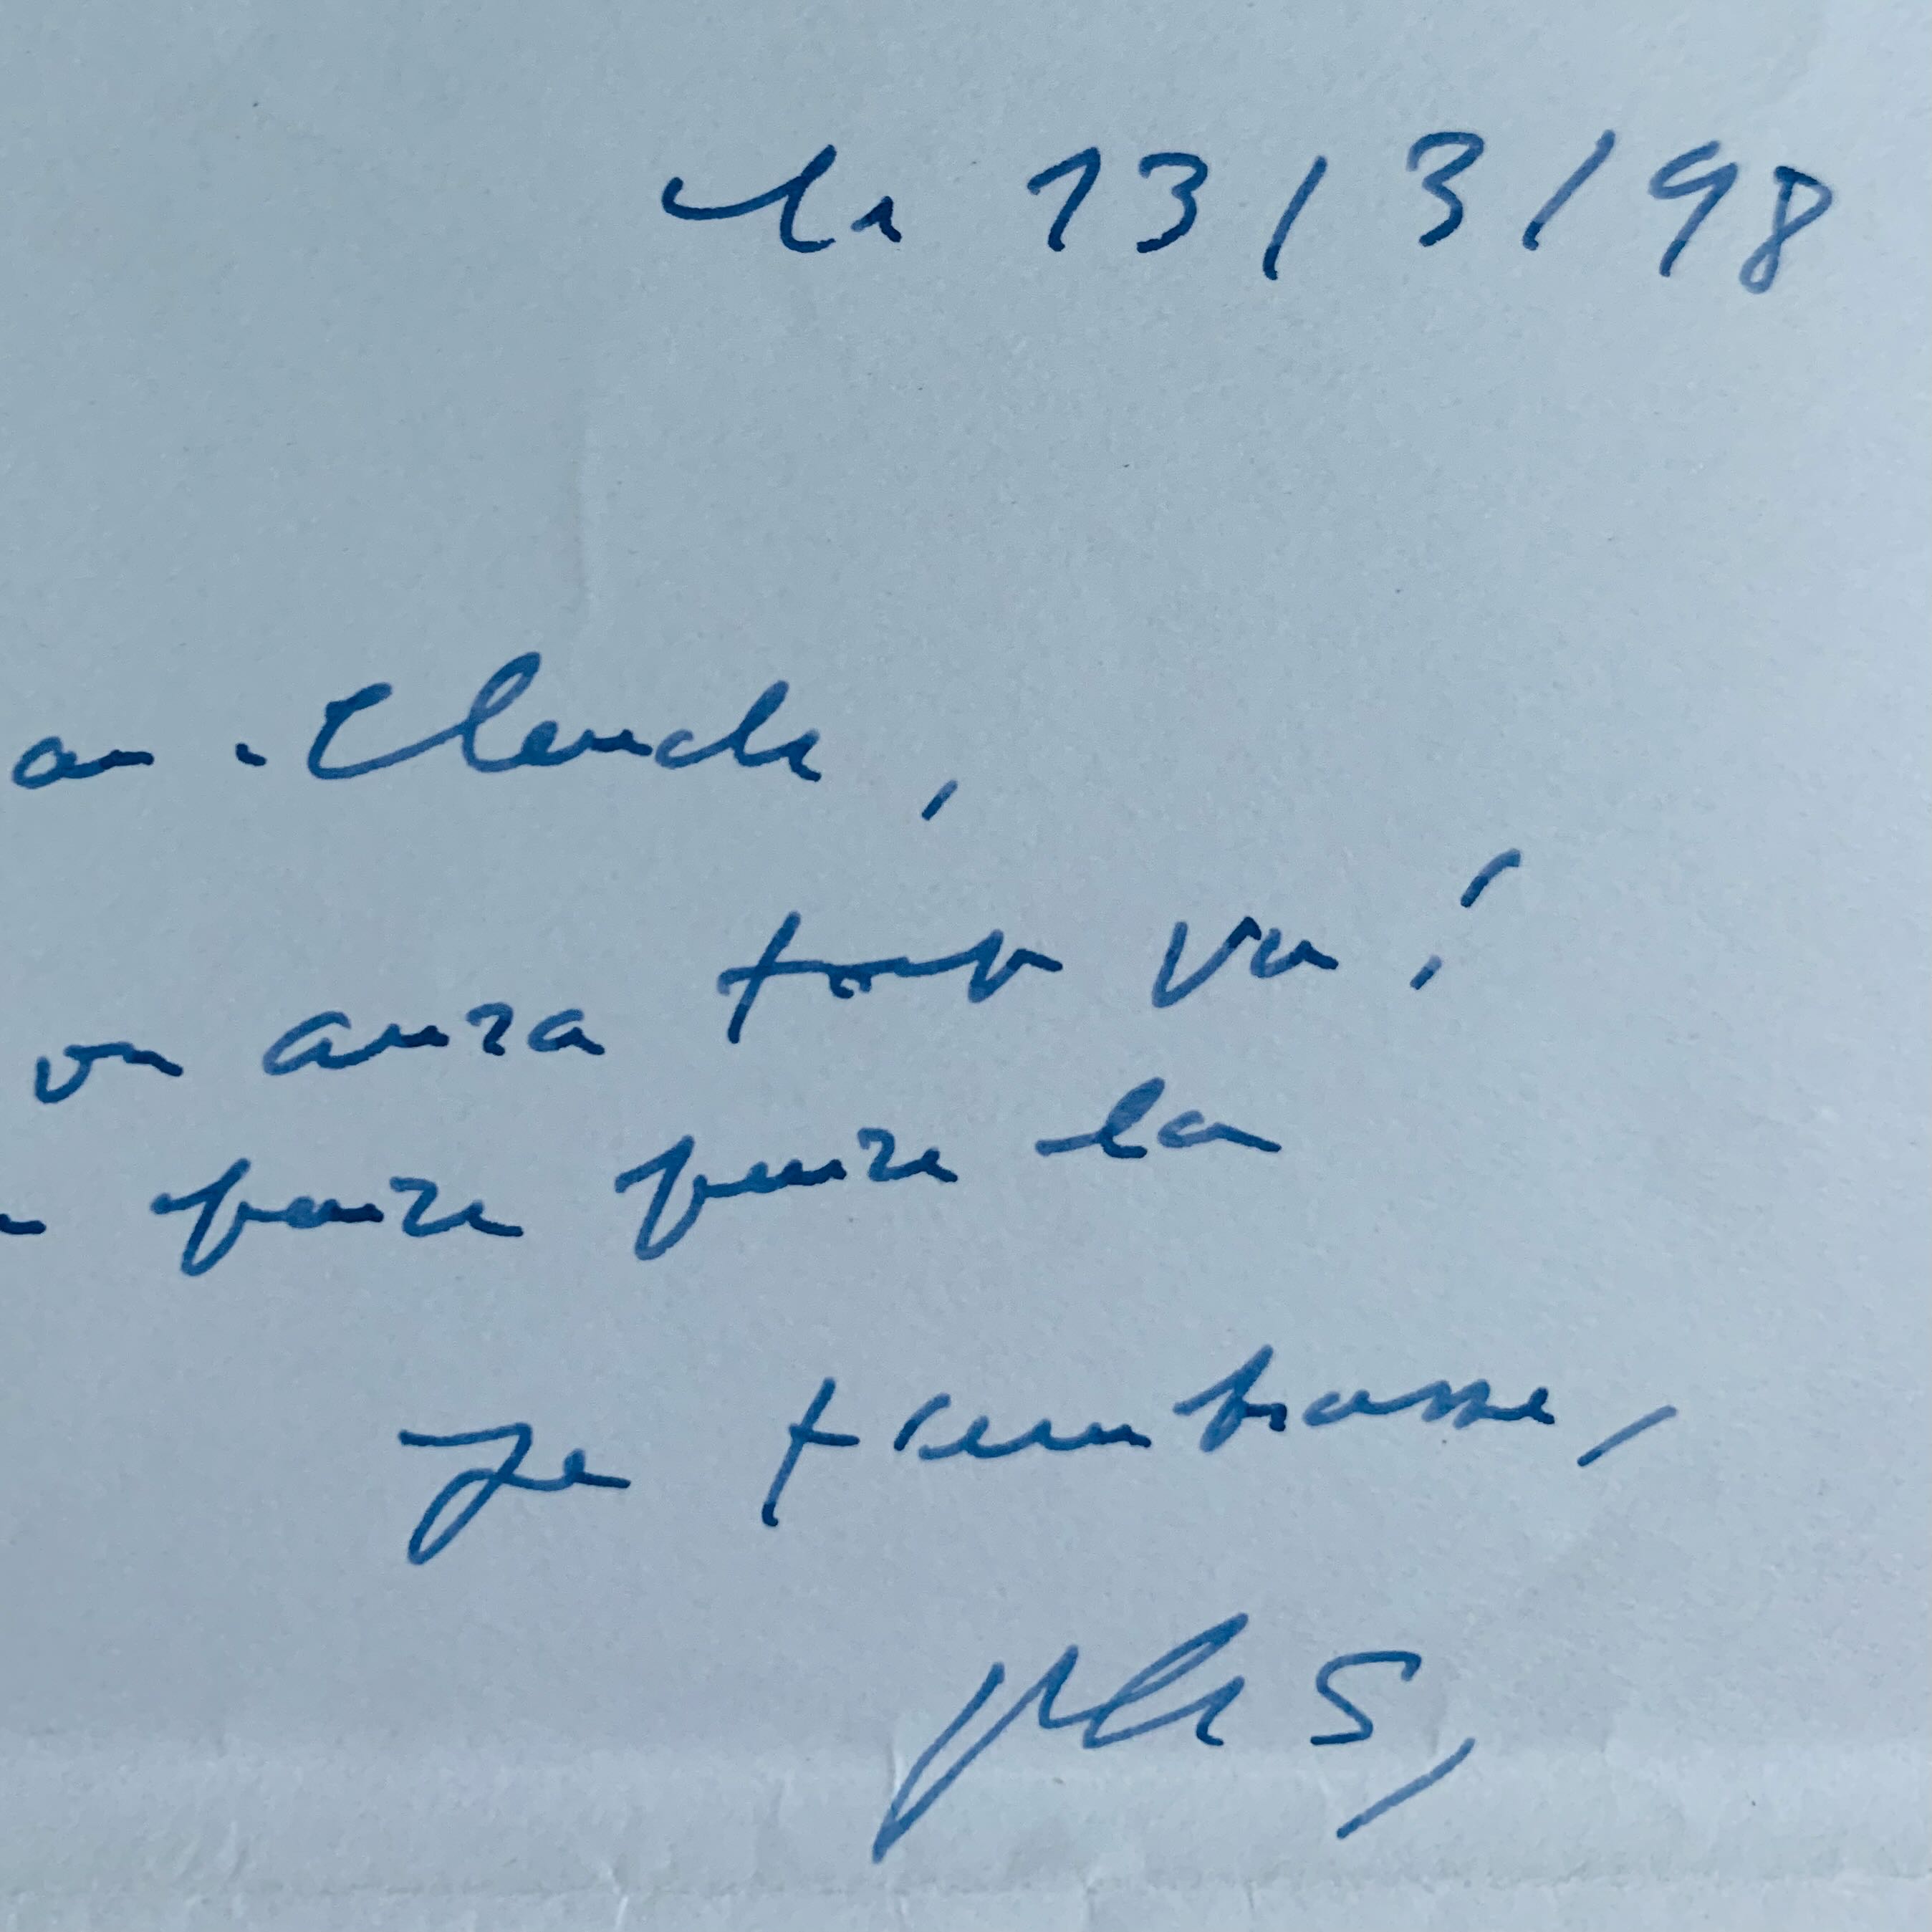 le 13/3/98
an-Claude,
on aura tout vu!
faire faire la
Je t'embrasse,